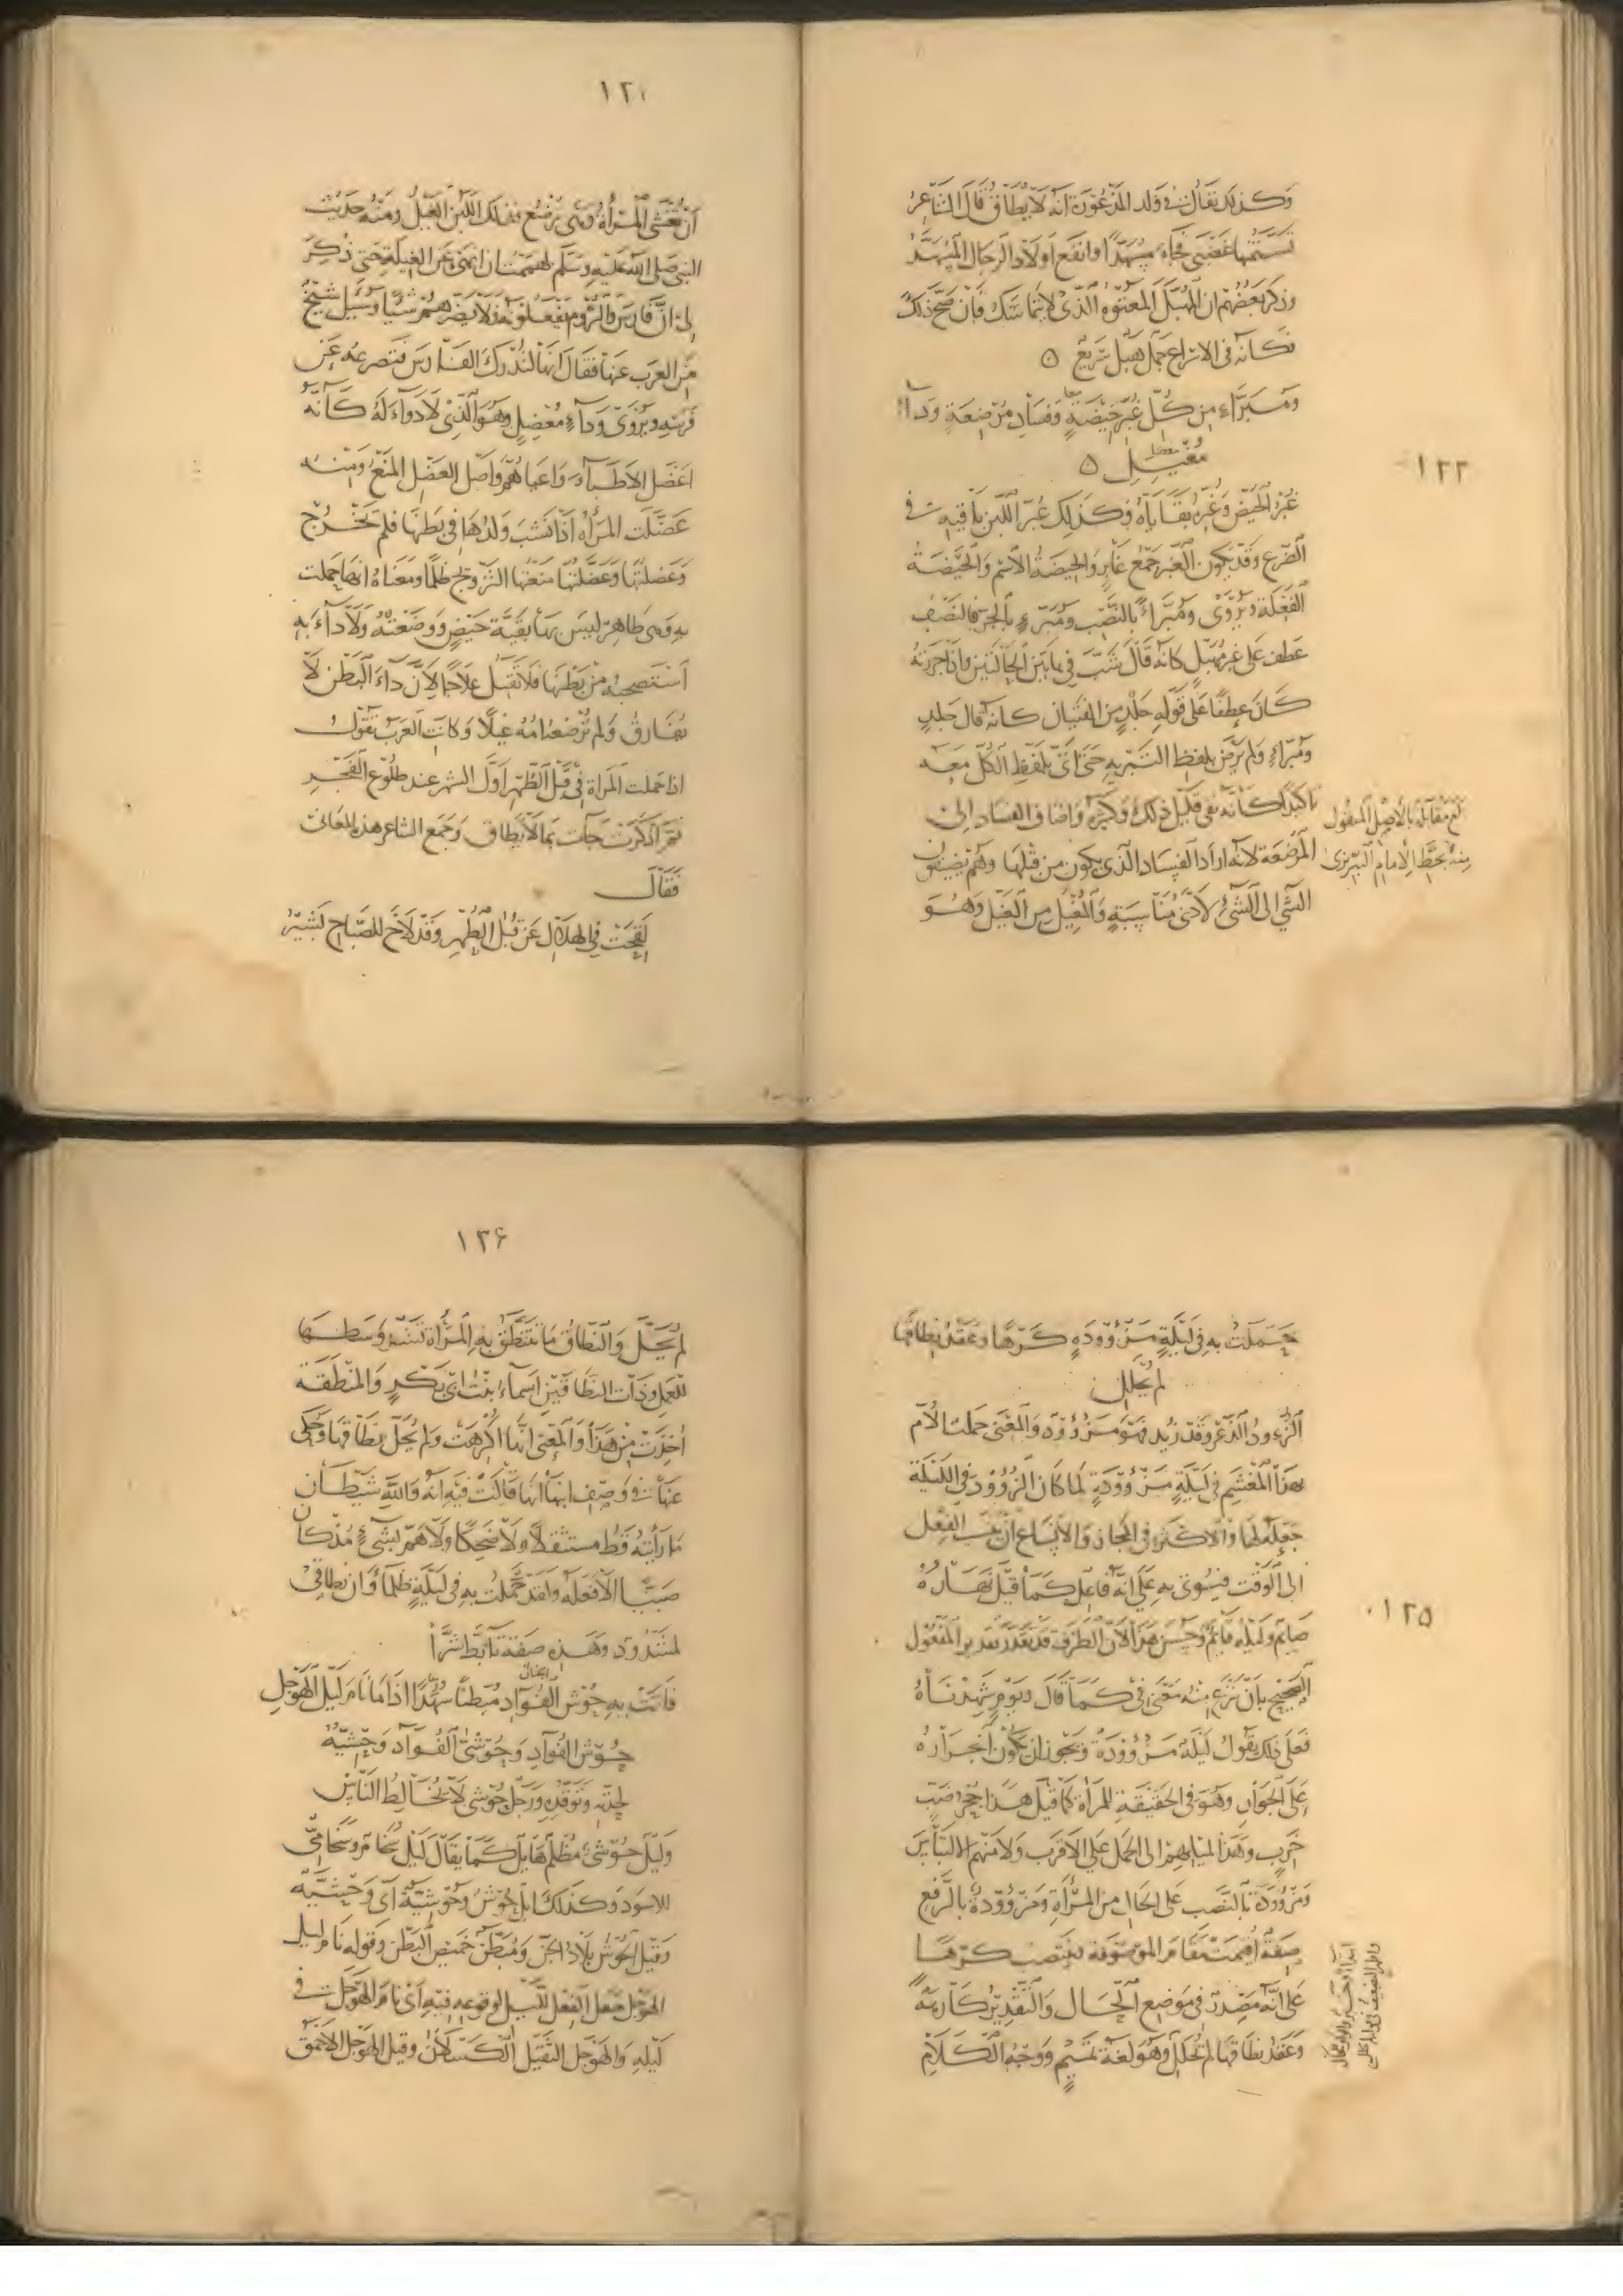 وكذلك يقال في ولد المذعورة انه لا يطاق قال الشاعر
تسنمتها غضبى فجاء مسهدا وانفع اولاد الرجال المسهد
وذكر بعضهم ان المهبل المعتوه الذي لا يتماسك فان صح ذلك
فكانه في الاسراع جمل هبل سريع ٥
ومبراء من كل غبر حيضة وفساد مرضعة وداء
مغيل ٥
معضل
١٢٣
غبر الحيض وغبره بقاياه وكذلك غبر اللبن باقيه في
الضرع وقد يكون الغبر جمع غابر والحيضة الاسم والحيضة
الفعلة ويروى ومبراء بالنصب ومبرء بالجر فالنصب
عطف على غير مهبل كانه قال شب في هاتين الحالتين واذا جررته
كان عطفا على قوله جلد من الفتيان كانه قال جلد
ومبراء ولم يرض بلفظ التبريه حتى اتى بلفظ الكل معه
تاكيدا كانه نفى قليل ذلك وكثيره واضاف الفساد الى
المرضعة لانه اراد الفساد الذي يكون من قبلها وهم يضيفون
الشي الى الشئ لادنى مناسبة والمغيل من الغيل وهو
بلغ مقابلة بالاصل المنقول
منه بخط الامام التبريزى
١٢٤
ان تغشى المراة وهي ترضع فذلك اللبن الغيل ومنه حديث
النبي صلى الله عليه وسلم لهممت ان انهى عن الغيلة حتى ذكر
لي ان فارس والروم يفعلونه فلا يضرهم شيا وسئل شيخ
من العرب عنها فقال انها لتدرك الفارس فتصرعه عن
فرسه ويروى وداء معضل وهو الذي لا دواء له كانه
اعضل الاطباء واعياهم واصل العضل المنع ومنه
عضلت المراه اذا نشب ولدها في بطنها فلم يخرج
وعضلتها وعضلتها منعتها التزويج ظلما ومعناه انها حملت
به وهي طاهر ليس بها بقية حيض ووضعته ولا داء به
استصحبه من بطنها فلا تقبل علاجا لان داء البطن لا
يفارق ولم ترضعه امه غيلا وكانت العرب تقول
اذا حملت المراة في قبل الطهر اول الشهر عند طلوع الفجر
ثم اذكرت جاءت بما لا يطاق وجمع الشاعر هذه المعاني
فقال
لقحت في الهلال عن قبل الطهر وقد لاح للصباح بشير
١٢٥
حملت به في ليلة مزؤودة كرها وعقد نطاقها
لم يحلل
الزءود الذعر وقد زئد فهو مزؤود والمعنى حملت الام
بهذا المغشم في ليلة مزؤودة لما كان الزؤود في الليلة
جعله لها والاكثر في المجاز والاتساع ان ينسب الفعل
الى الوقت فيؤتى به على انه فاعل كما قيل نهاره
صائم وليله قائم وحسن هذا لان الظرف قد يقدر تقدير المفعول
الصحيح بان ينزع منه معنى في كما قال ويوم شهدناه
فعلى ذلك يقول ليلة مزؤودة ويجوز ان يكون انجراره
على الجوار وهو في الحقيقة للمراة كما قيل هذا جحر ضب
خرب وهذا لميلهم الى الحمل على الاقرب ولامنهم الالتباس
ومزؤودة بالنصب على الحال من المرأة ومزؤودة بالرفع
صفة اقيمت مقام الموصوفه ينتصب كرها
على انه مصدر في موضع الحال والتقدير كارهة
وعقد نطاقها لم تحلل وهو لغة تميم ووجه الكلام
١٢٦
لم يحل والنطاق ما تنتطق به المرأة تشد وسطها
للعمل وذات النطاقين اسماء بنت ابي بكر والمنطقة
اخذت من هذا والمعنى انها اكرهت ولم يحل نطاقها وحكى
عنها في وصف ابنها انها قالت فيه انه والله شيطان
ما رايته قط مستثقلا ولا ضحكا ولا هم بشيء مذ كان
صبيا الا فعله ولقد حملت به في ليلة ظلماء وان نطاقي
لمشدود وهذه صفة تابط شرا
فاتت به حوش الفؤاد مبطنا سهدا اذا ما نام ليل الهوجل
الجنان
حوش الفواد وحوشى الفواد وحشيه
لحدته وتوقده ورجل حوشى لا يخالط الناس
وليل حوشى مظلم هائل كما يقال ليل سخام وسخامي
للاسود وكذلك ابل حوش وحوشية اى وحشيه
وقيل الحوش بلاد الجن ومبطن خميص البطن وقوله نام ليل
الهوجل جعل الفعل لليل لوقوعه فيه اى نام الهوجل في
ليله والهوجل الثقيل الكسلان وقيل الهوجل الاحمق